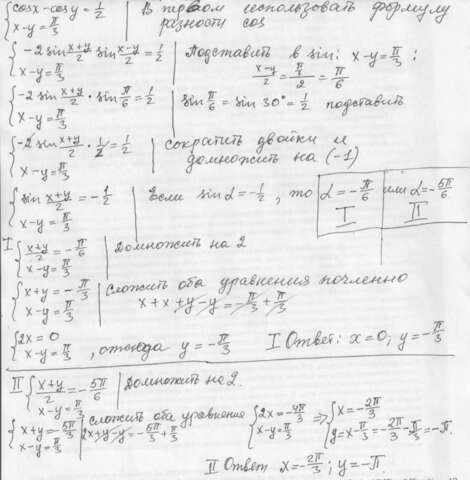 { cosx - cosy = 1/2 | В первом использовать формулу
{ x - y = π/3 | разности cos
{ -2 sin (x+y)/2 sin (x-y)/2 = 1/2 | Подставить в sin: x - y = π/3 :
{ x - y = π/3 | (x-y)/2 = (π/3)/2 = π/6
{ -2 sin (x+y)/2 · sin π/6 = 1/2 | sin π/6 = sin 30° = 1/2 подставить
{ x - y = π/3
{ -2 sin (x+y)/2 · 1/2 = 1/2 | сократить двойки и
{ x - y = π/3 | домножить на (-1)
{ sin (x+y)/2 = -1/2 | Если sin α = -1/2, то α = -π/6 или α = -5π/6
{ x - y = π/3 | I II
I { (x+y)/2 = -π/6 | Домножить на 2
{ x - y = π/3
{ x + y = -π/3 | Сложить оба уравнения почленно
{ x - y = π/3 | x + x + y - y = -π/3 + π/3
{ 2x = 0
{ x - y = π/3 , отсюда y = -π/3 I Ответ: x = 0; y = -π/3
II { (x+y)/2 = -5π/6 | Домножить на 2.
{ x - y = π/3
{ x + y = -5π/3 | сложить оба уравнения { 2x = -4π/3 ⇒ { x = -2π/3
{ x - y = π/3 | 2x + y - y = -5π/3 + π/3 { x - y = π/3 { y = x - π/3 = -2π/3 - π/3 = -π.
II Ответ x = -2π/3 ; y = -π.